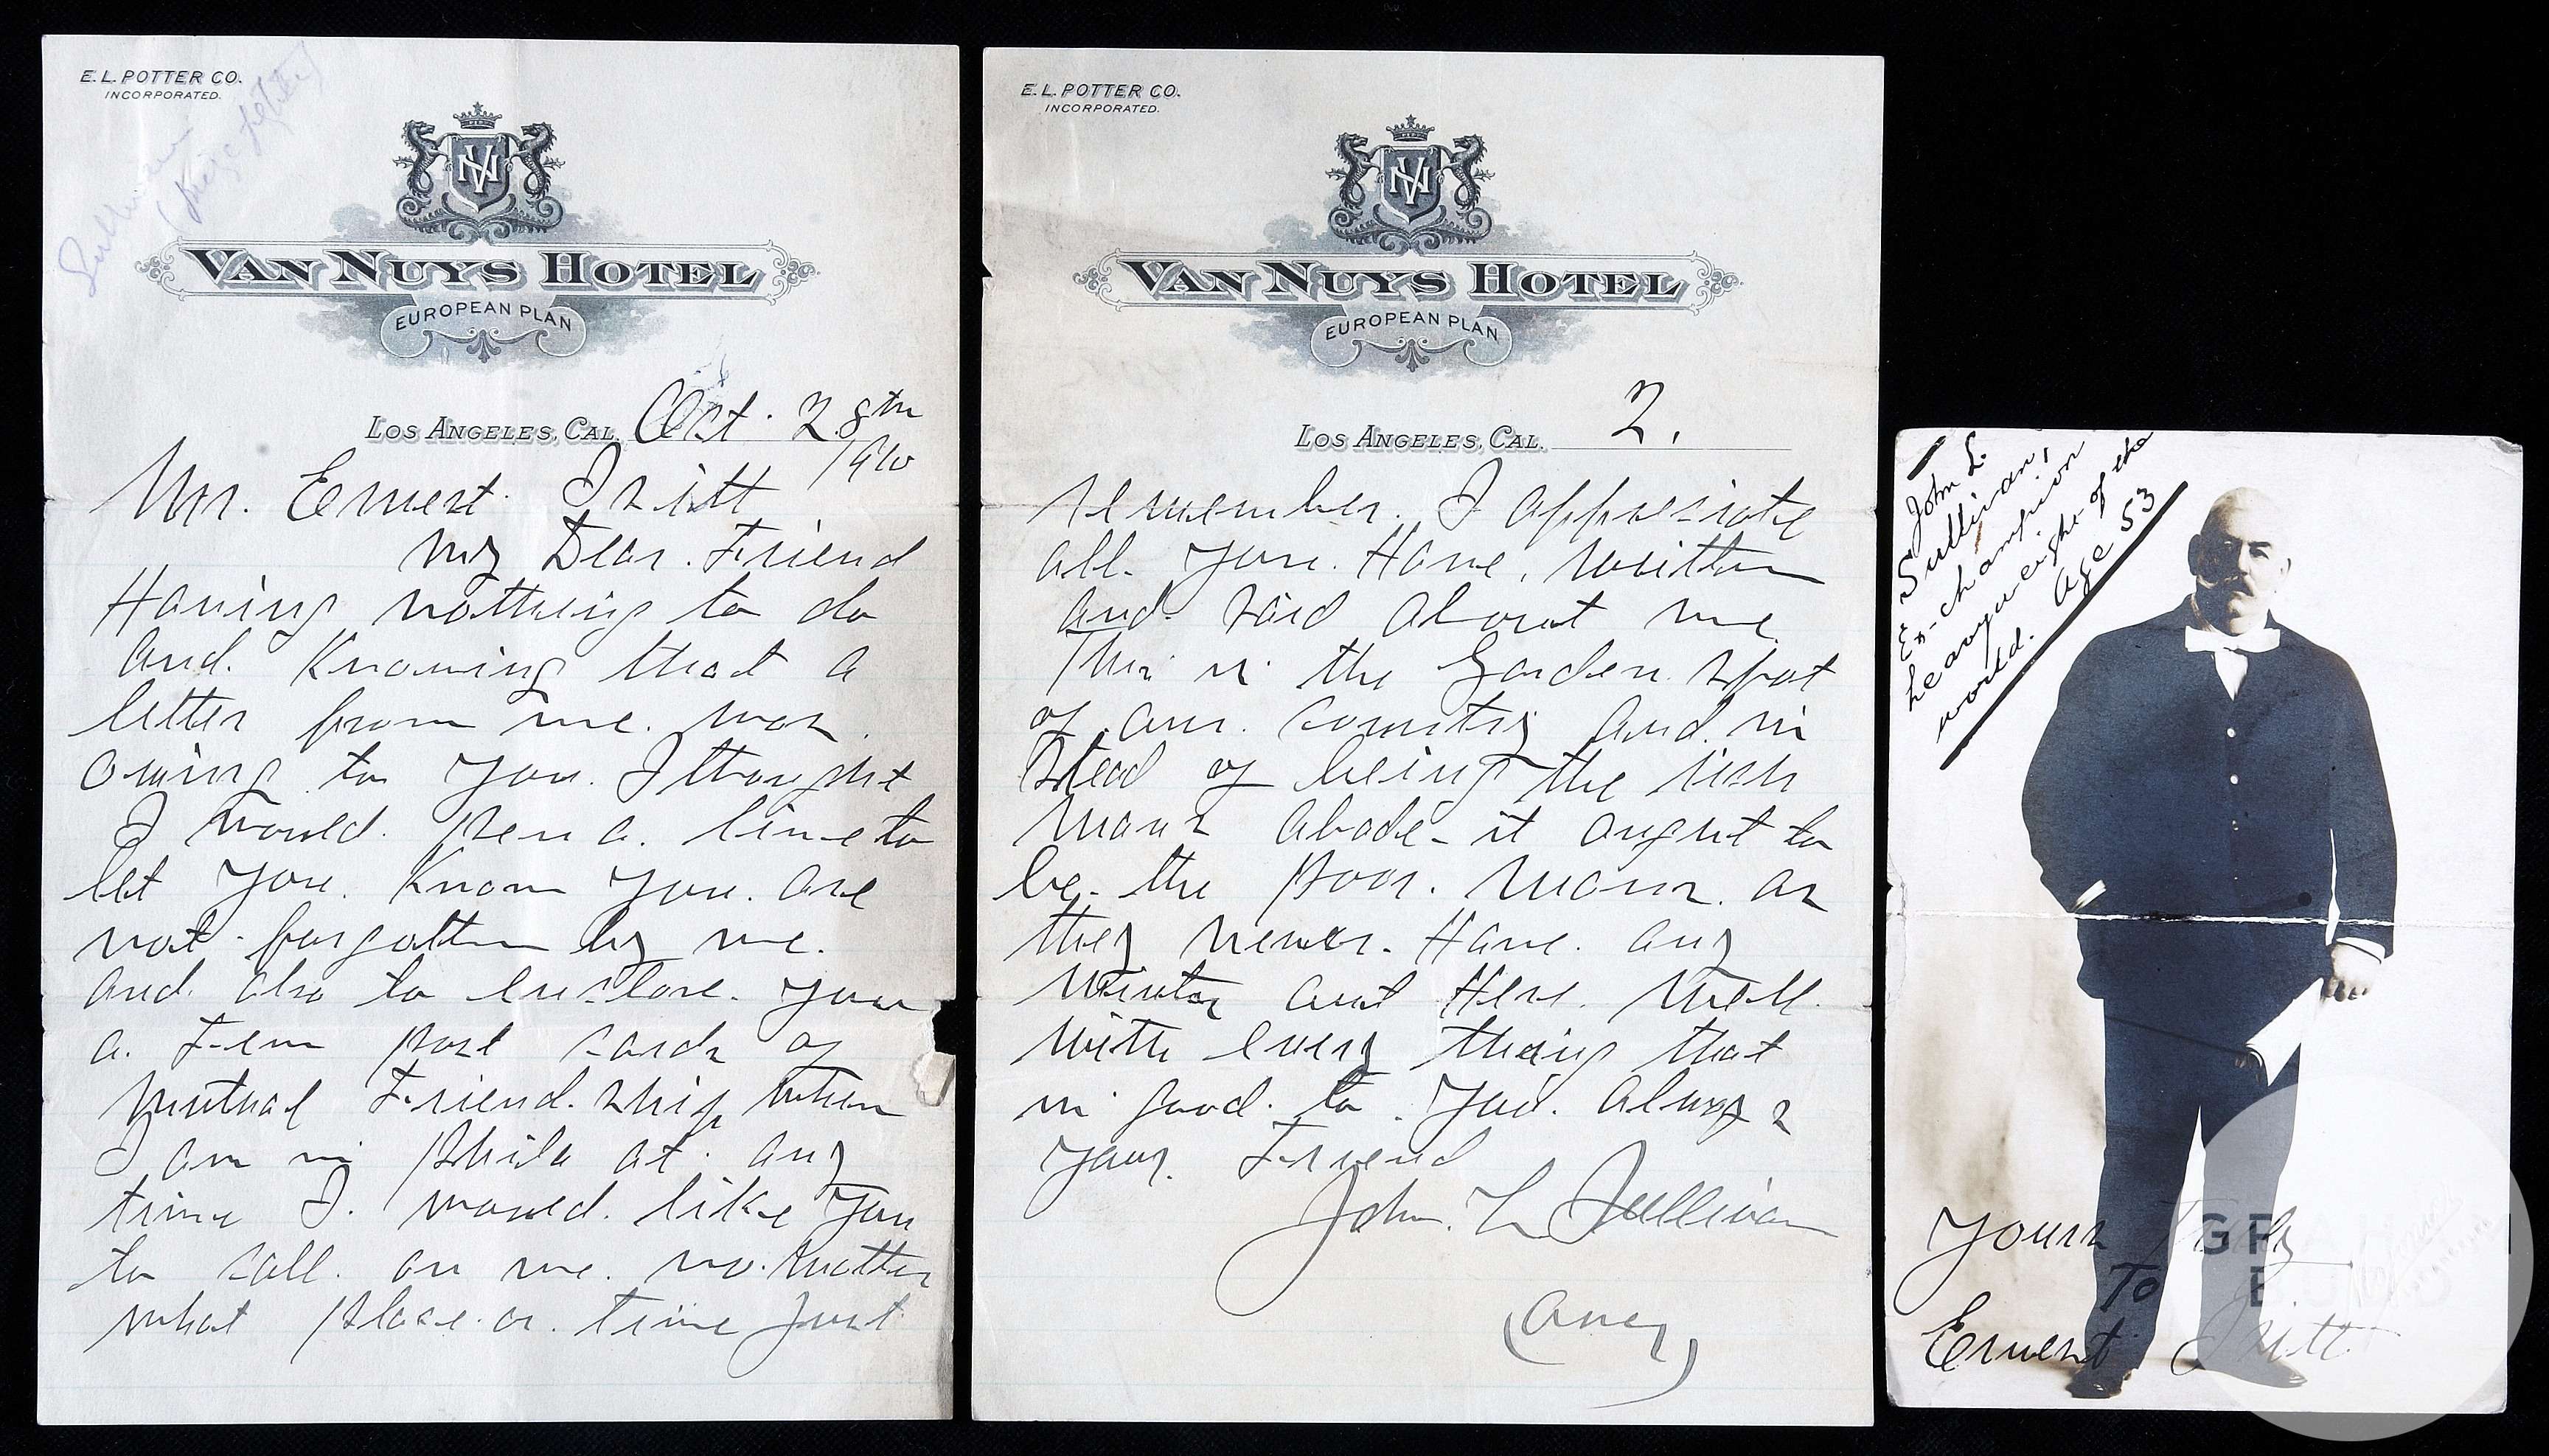 E. L. POTTER CO.
INCORPORATED.
Sullivan
(prize fighter)
VN
VAN NUYS HOTEL
EUROPEAN PLAN
LOS ANGELES, CAL. Oct. 28th
1910
Mr. Ernest
My Dear. Friend
Having nothing to do
and. Knowing that a
letter from me. was
owing to you. I thought
I would. pen a. line to
let you. Know you. are
not forgotten by me.
and also to enclose. you
a. few post cards of
mutual Friend. ship when
I am in Phila at. any
time I. would. like you
to call. on me. no. matter
what place. or. time Just
E. L. POTTER CO.
INCORPORATED.
VN
VAN NUYS HOTEL
EUROPEAN PLAN
LOS ANGELES, CAL. 2.
remember. I appreciate
all. you. Have. written
and. said about me.
This is the Garden. spot
of our. country and. in
stead of being the rich
mans abode - it ought to
be. the poor. mans. as
they never. Have. any
winter out Here. Well.
with every thing that
is good. to. you. always
your. Friend
John. L Sullivan
(over)
John L.
Sullivan,
Ex-champion
heavyweight of the
world. Age 53
Yours Truly
To
Ernest